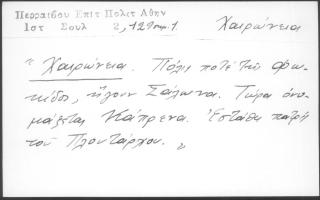 Περραιβου Επιτ Πολιτ Αθην
Ιστ Σουλ 2, 129 σημ. 1
Χαιρώνεια
„ Χαιρώνεια. Πόλις ποτέ της Φω-
κίδος, ήγουν Σάλωνα. Τώρα ονο-
μάζεται Κάπρενα. Εστάθη πατρίς
του Πλουτάρχου. „